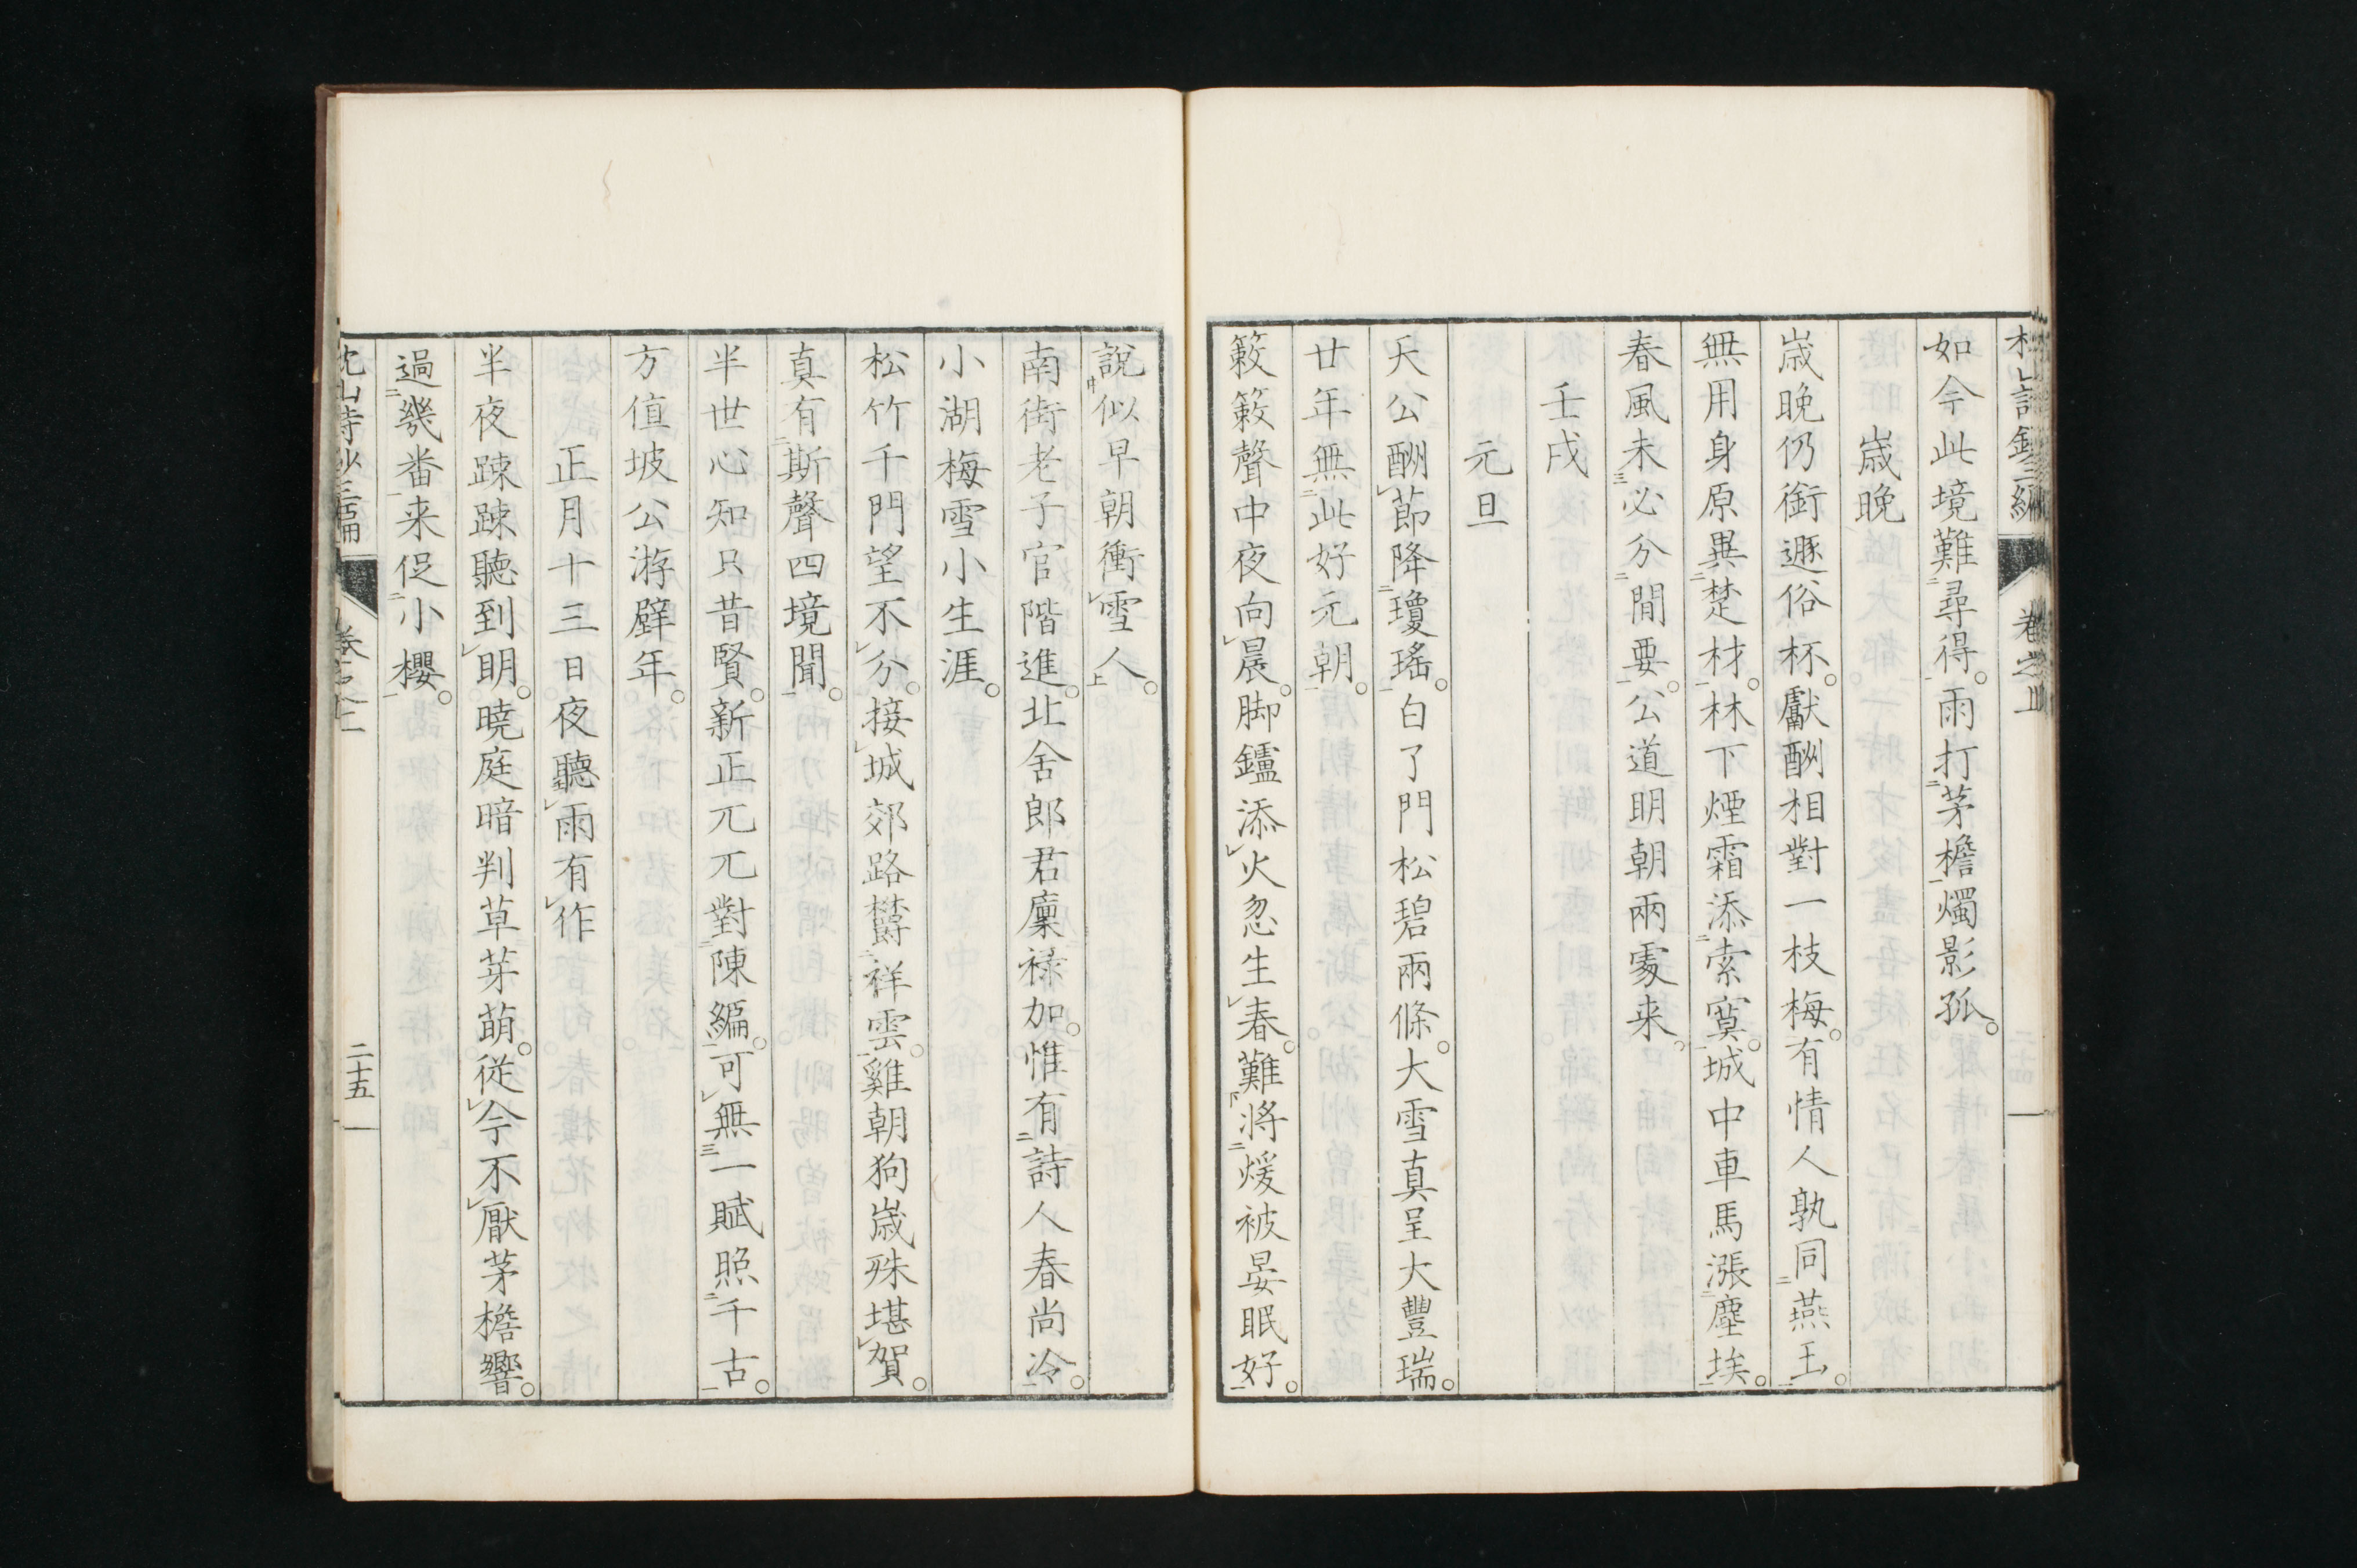 如今此境難尋得雨打茅檐燭影孤
歳晩
歳晩仍銜遯俗杯獻酬相對一枝梅有情人孰同燕玉
無用身原異楚材林下煙霜添索寞城中車馬漲塵埃
春風未必分閒要公道明朝兩處来
壬戌
元旦
天公酬節降瓊瑤白了門松碧兩條大雪真呈大豐瑞
廿年無此好元朝
簌簌聲中夜向晨脚鑪添火忽生春難將煖被晏眠好
說似早朝衝雪人
南街老子官階進北舍郎君廩禄加惟有詩人春尚冷
小湖梅雪小生涯
松竹千門望不分接城郊路欝祥雲雞朝狗歳殊堪賀
真有斯聲四境聞
半世心知只昔賢新正兀兀對陳編可無一賦照千古
方值坡公游壁年
正月十三日夜聽雨有作
半夜踈踈聽到明曉庭暗判草芽萌從今不厭茅檐響
過幾番来促小櫻
二十五